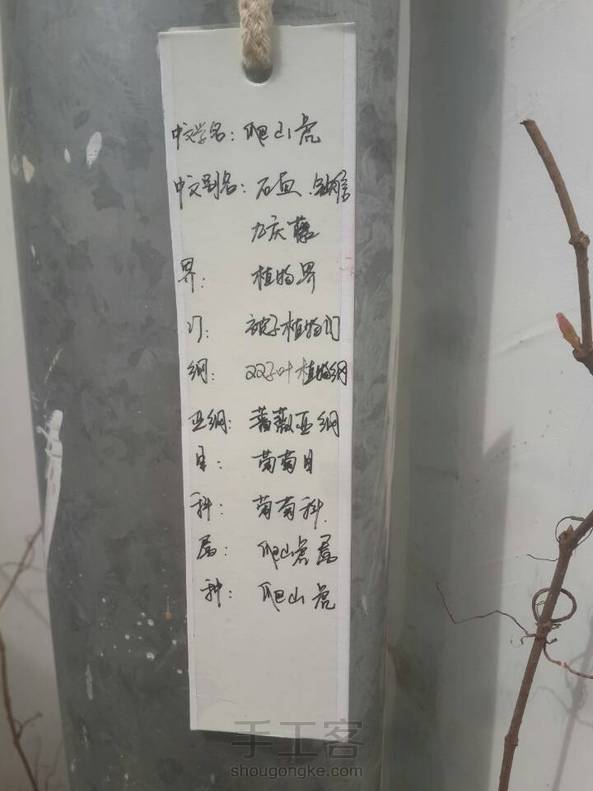 中文学名：爬山虎
中文别名：石血
九庆藤
界：植物界
门：被子植物门
纲：双子叶植物纲
亚纲：蔷薇亚纲
目：葡萄目
科：葡萄科
属：爬山虎属
种：爬山虎
手工客
shougongke.com